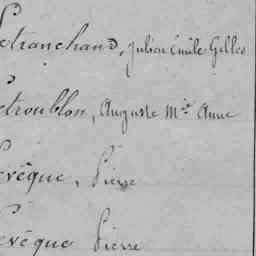 Letranchand, Julien Emile Gilles
Letroublon, Auguste Mie Anne
Levêque, Pierre
Levêque Pierre